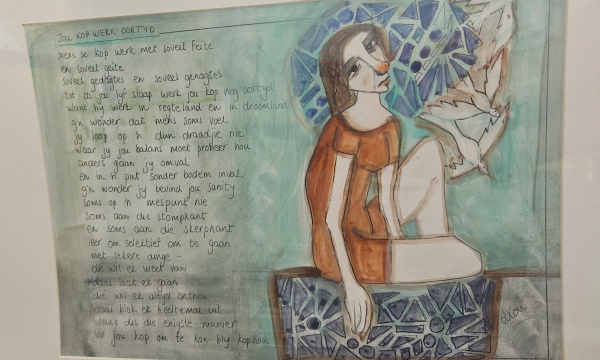 JOU KOP WERK OORTYD
mens se kop werk met soveel feite
en soveel geite
soveel gedagtes en soveel genagtes
tot as jou lyf slaap werk jou kop nog oortyd
want hy werk in regteland en in droomland
g'n wonder dat mens soms voel
jy loop op 'n dun draadjie nie
waar jy jou balans moet probeer hou
anders gaan jy omval
en in 'n put sonder bodem inval
g'n wonder jy bevind jou sanity
soms op 'n mespunt nie
soms aan die stompkant
en soms aan die skerpkant
leer om selektief om te gaan
met sekere dinge -
die wil ek weet van
daai laat ek gaan
die wil ek altyd onthou
daai blok ek heeltemal uit
want dis die enigste manier
vir jou kop om te kan bly kophou